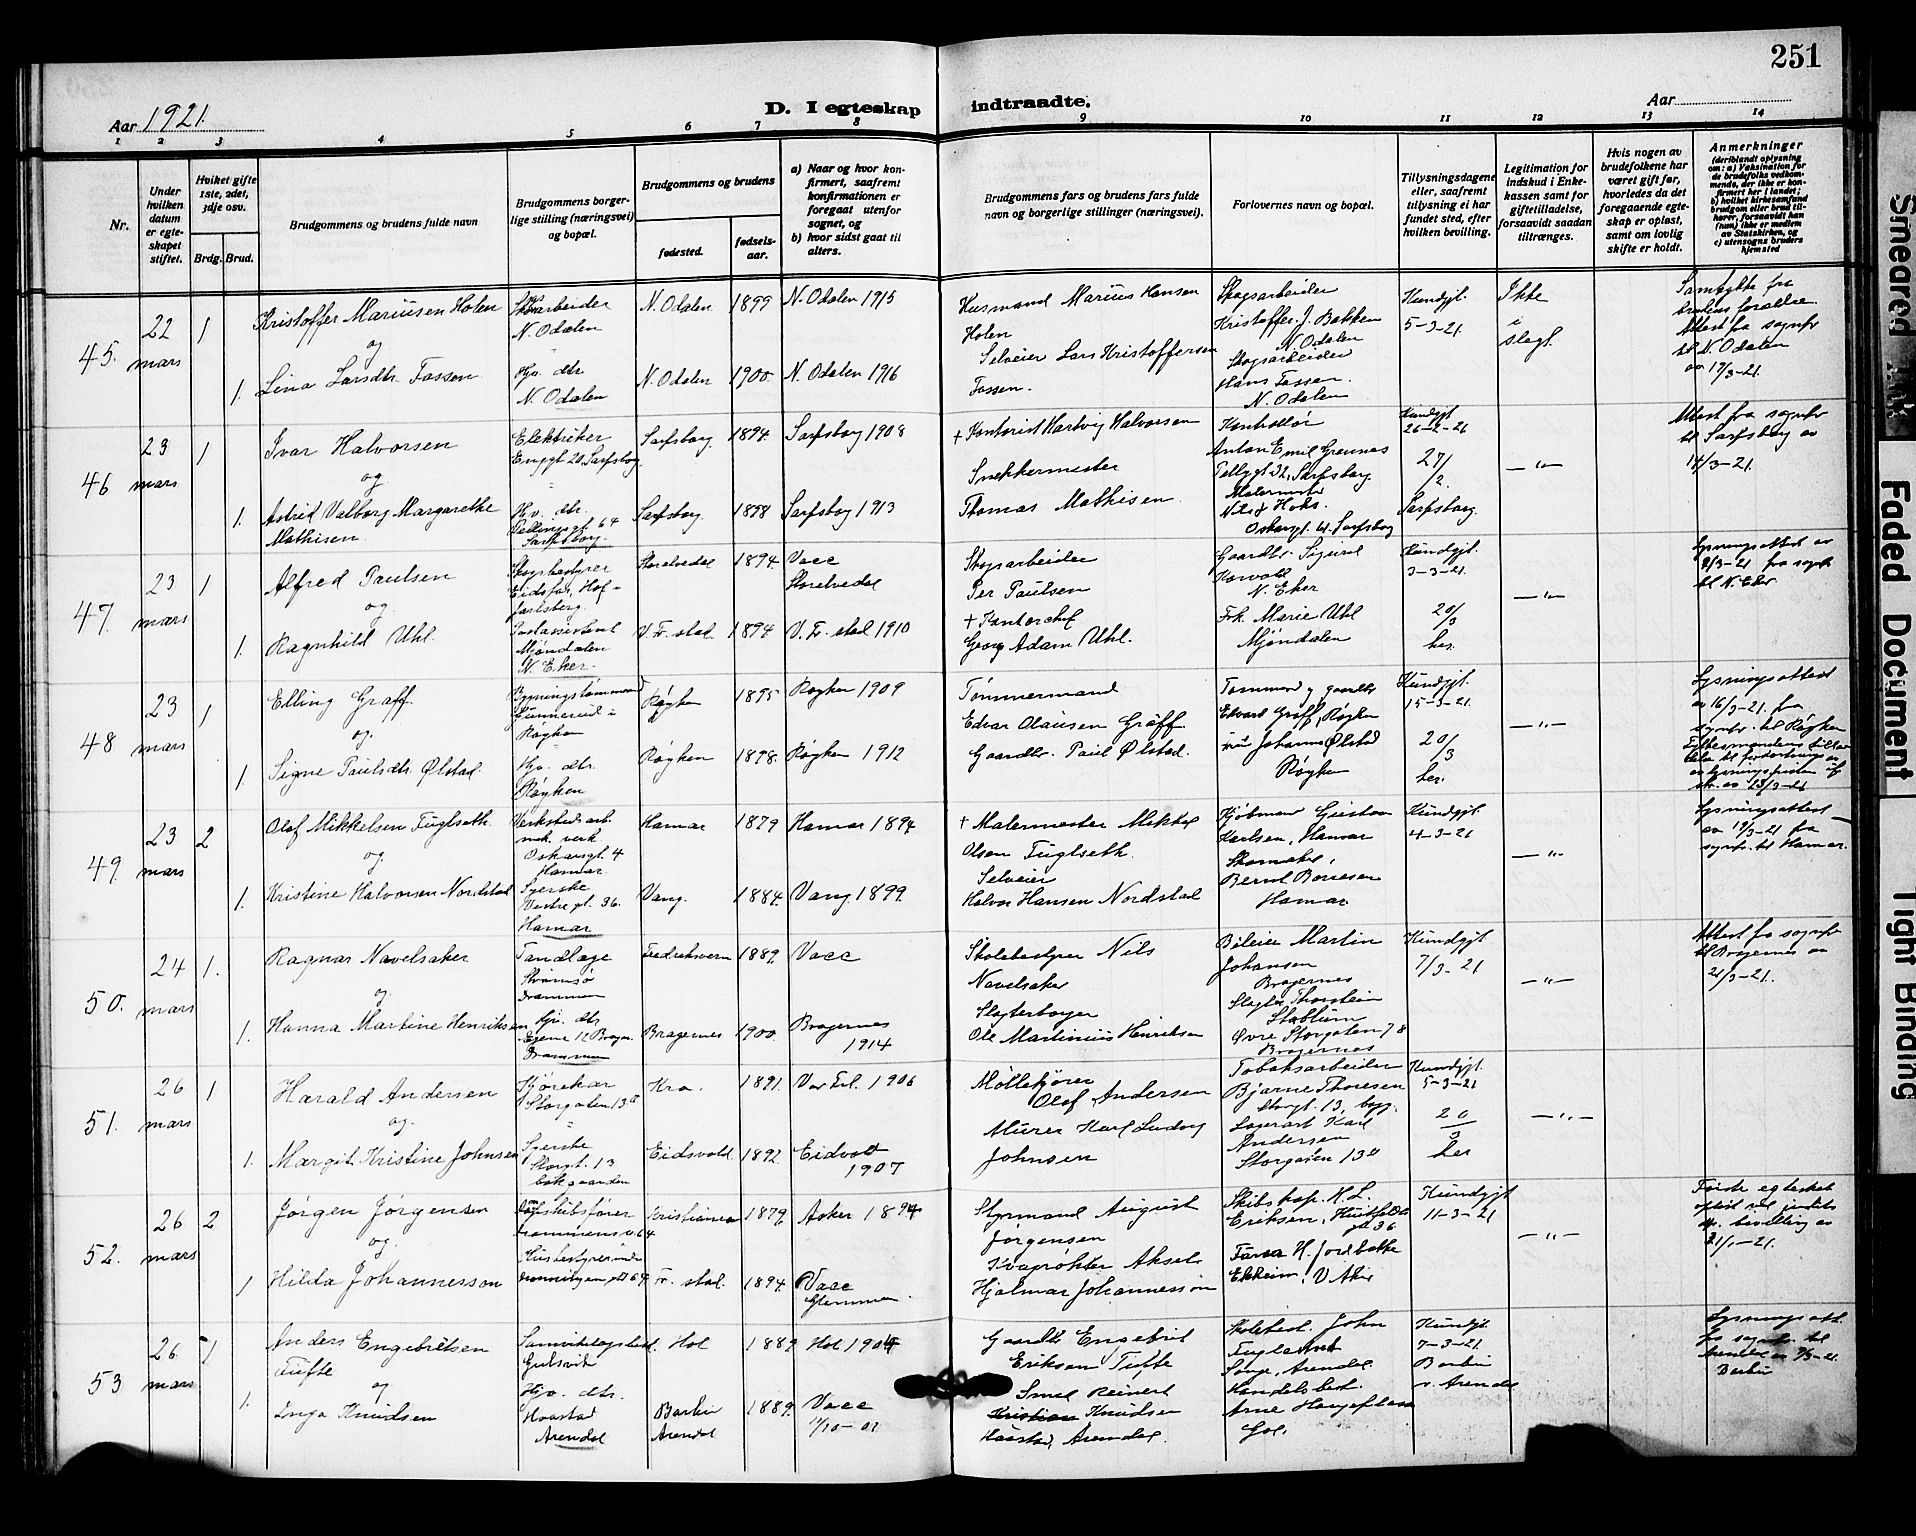 251
Aar 1921.
D. I egteskap indtraadte.
Aar
1 2 3 4 5 6 7 8 9 10 11 12 13 14
Nr.
Under hvilken datum er egteskapet stiftet.
Hvilket gifte 1ste, 2det, 3dje osv.
Brdg. Brud.
Brudgommens og brudens fulde navn
Brudgommens borgerlige stilling (næringsvei) og bopæl.
Brudgommens og brudens
fødested.
fødselsaar.
a) Naar og hvor konfirmert, saafremt konfirmationen er foregaat utenfor sognet, og
b) hvor sidst gaat til alters.
Brudgommens fars og brudens fars fulde navn og borgerlige stillinger (næringsvei).
Forlovernes navn og bopæl.
Tillysningsdagene eller, saafremt tillysning ei har fundet sted, efter hvilken bevilling.
Legitimation for indskud i Enkekassen samt for giftetilladelse, forsaavidt saadan tiltrænges.
Hvis nogen av brudefolkene har været gift før, hvorledes da det foregaaende egteskap er opløst, samt om lovlig skifte er holdt.
Anmerkninger
(deriblandt oplysning om: a) Vaksination for de brudefolks vedkommende, der ikke er konfirmert her i landet; b) hvilket kirkesamfund brudgom eller brud tilhører, forsaavidt han (hun) ikke er medlem av Statskirken, og c) utensogns bruders hjemsted
45. 22 mars 1
Kristoffer Mariusen Holen
Skogarbeider N. Odalen
N. Odalen 1899 N. Odalen 1915
Husmand Marius Hansen Holen
Skogsarbeider Kristoffer J. Bakken N. Odalen
Kundgjt. 5-3-21
Ikke i slegt.
Samtykke fra brudens forældre. Attest fra sognepr til N. Odalen av 17/3-21.
og
1. Lina Larsdtr. Fossen
Hjv. dtr. N. Odalen
N. Odalen 1900. N. Odalen 1916
Selveier Lars Kristoffersen Fossen.
Skogsarbeider Hans Fossen. N. Odalen
46 23 mars 1
Ivar Halvorsen
Elektriker Enggt 20. Sarpsborg
Sarpsborg 1894. Sarpsborg 1908
+ Kontorist Hartvig Halvorsen
Kontrollør Anton Emil Grennes
Kundgjt 26-2-21
27/2. Sarpsborg.
Attest fra sognepr til Sarpsborg av 14/3-21.
og
1. Astrid Valborg Margarethe Mathisen
Hjv. dtr. 64 Sarpsborg
Sarpsborg. 1898 Sarpsborg 1913
Snekkermester Thomas Mathisen.
Oskarsgt. 4. Sarpsborg
47. 23 mars 1
Alfred Paulsen
Skogbestyrer Eidsfos, Hof i Jarlsberg.
Storelvedal 1894. Vacc Storelvedal
Skogarbeider Per Paulsen
Gaardbr. Sigurd N. Eker
Kundgjt. 3-3-21.
20/3 her.
Lysningsattest av 21/3-21 fra sognepr til N. Eker.
og
1. Ragnhild Uhl.
Postassistent Mjøndalen N. Eker.
V. Fr. stad 1894 V. Fr. stad 1910
+ Kontorchef Georg Adam Uhl.
Frk. Marie Uhl Mjøndalen
48 23 mars 1
Elling Graff
Bygningstømmermand Gunnerud i Røyken
Røyken 1895 Røyken 1909
Tømmermand Edvar Olausen Graff
Edvard Graff, Røyken
Kundgjt. 15-3-21.
20/3 her.
Lysningsattest av 16/3-21 fra sognepr. til Røyken
og
1. Signe Paulsdtr. Ølstad.
Hjv. dtr. Røyken
Røyken 1898. Røyken 1912
Gaardbr. Paul Ølstad.
Johannes Ølstad Røyken
49. 23 mars 2
Olaf Mikkelsen Fuglseth.
Verkstedsarb. mek. verk Oskarsgt. 4 Hamar.
Hamar 1879 Hamar 1894
+ Malermester Mikkel Olsen Fuglseth.
Kjøbmand Gustav Karlsen, Hamar
Kundgjt 4-3-21
Lysningsattest av 19/3-21 fra sognepr. til Hamar.
og
1. Kristine Halvorsen Nordstad
Syerske Vestregt. 36. Hamar
Vang. 1884. Vang 1899.
Selveier Halvor Hansen Nordstad
Skomaker, Bernt Borresen Hamar
50. 24 mars 1.
Ragnar Navelsaker
Tandlæge Strømsø Drammen
Fredriksvern 1889. Vacc
Skolebestyrer Nils Navelsaker
Bileier Martin Johansen Bragernes
Kundgjt. 7/3-21
Attest fra sognepr til Bragernes av 21/3-21.
og
1. Hanna Martine Henriksen
Hjv. dtr. Drammen
Bragernes 1900. Bragernes 1914
Ole Martinius Henriksen
Slagter Thorstein Øvre Storgaten 78 Bragernes
51. 26 mars 1
Harald Andersen
Kjørekar Storgaten 13 a
Kra. 1891. Vor Frl. 1906
Møllekjører Olaf Andersen
Tobaksarbeider Bjarne Thoresen Storgt. 13,
Kundgjt. 5-3-21
20/3 her
og.
1. Margit Kristine Johnsen
Syerske Storgt. 13 bakgaarden
Eidsvold 1892. Eidsvold 1907
Murer Karl Ludvig Johnsen
Karl Andersen Storgaten 13 a
52. 26 mars 2
Jørgen Jørgensen
Drammensv. 64
Kristiania 1879. Asker 1894
Styrmand August Jørgensen
Skibskap. H. L. Eriksen, Huitfeldts gt 36
Kundgjt 11-3-21
Første egteskap opløst ved bevilling av 21/1-21.
og.
1 Hilda Johannesson
Husbestyrerinde
Fr. stad. 1894. Vacc Glemmen.
Hjalmar Johannesson
V. Aker
53 26 mars 1
Anders Engebretsen Tufte
Gulsvik
Hol 1889. Hol 1904
Gaardbr Engebret Eriksen Tufte
John Fugleand Songe, Arendal
Kundgjt. 7-3-21. Barbu v. Arendal
Lysningsatt. fra sognepr. til Arendal av 9/3-21. Barbu
og
1. Inga Knudsen
Hjv. dtr. Havstad Arendal
Barbu Arendal 1889. Vacc 11/10-01
Smed Reinert Kristian Knudsen Havstad, Arendal.
Handelsbest. Arne Gol.
Smeared Ink
Faded Document
Tight Binding